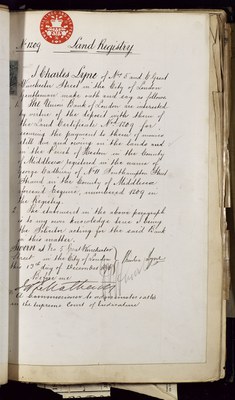 No 1209 Land Registry
I Charles Lyne of No 5 and 6 Great
Winchester Street in the City of London
Gentleman make oath and say as follows
1 The Union Bank of London is interested
by virtue of the deposit with them of
the Land Certificate No 1209 for
securing the payment to them of monies
still due and owing in the lands
in the Parish of in the County
of Middlesex registered in the name of
George of No 11 Southampton Street
Strand in the County of Middlesex
Esquire numbered 1209 in
the Registry.
2 The statement in the above paragraph
is to my own knowledge true I being
the Solicitor acting for the said Bank
in this matter.
Sworn at No Great Winchester
Street in the City of London Charles Lyne
this day of December
Before me
A Commissioner to administer oaths
in the Supreme Court of Judicature